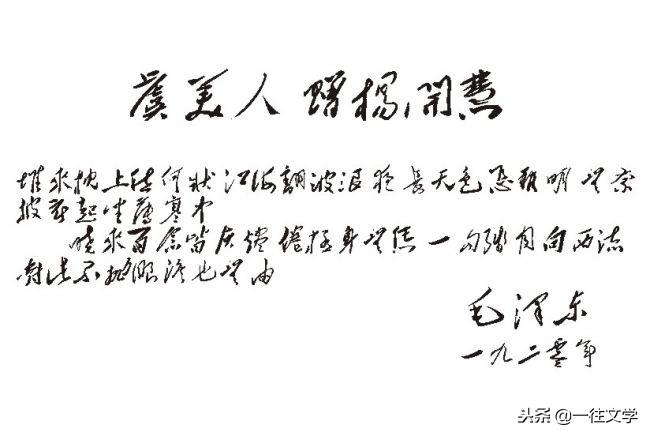 虞美人 贈楊開慧
堆来枕上愁何状 江海翻波浪 夜长天色怎难明 无奈
披衣起坐薄寒中
晓来百念皆灰烬 倦极身无凭 一勾残月向西流
对此不抛眼泪也无由
毛泽东
一九二零年
头条 @一往文学